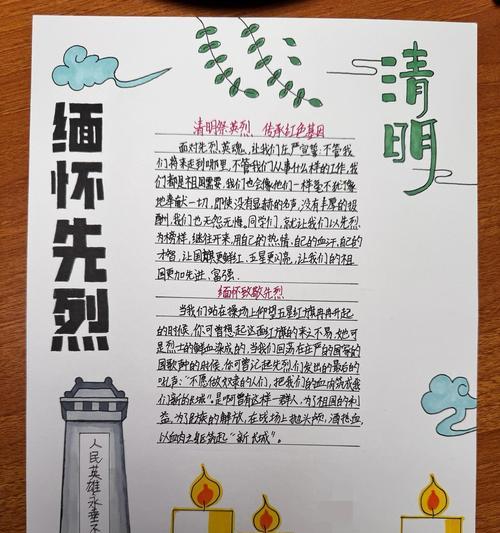 缅怀先烈
清明
清明祭英烈、传承红色基因
面对先烈英魂,让我们庄严宣誓:不管我
们将来走到哪里,不管我们从事什么样的工作,我
们都是祖国需要,我们也会像他们一样毫不犹豫
地奉献一切,即使没有显赫的名声,没有丰厚的报
酬,我们也无怨无悔。同学们,就让我们以先烈
为榜样,继往开来,用自己的热情,自己的血汗,自己的
才智,让国旗更鲜红,五星更闪亮,让我们的祖
国更加先进、富强。
缅怀致敬先烈
当我们站在操场上仰望五星红旗冉冉升起
的时候,你可曾想起这面红旗的来之不易,她可
是烈士的鲜血染成的,当我们回荡在庄严的国家的
国歌声的时候,你可曾记起先烈们发出的最后的
吼声:“不愿做奴隶的人们,把我们的血肉筑成我
们新的长城”。是啊曾有这样一群人,为了祖国的利
益,为了民族的解放,在战场上抛头颅,洒热血,
以血肉之躯筑起“新长城”。
人民英雄永垂不